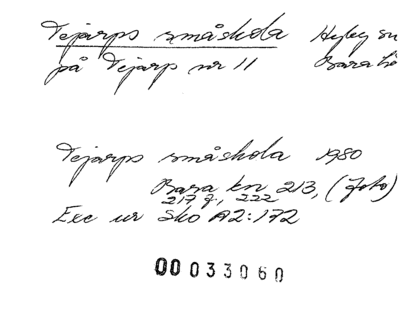 Tejarps småskola Hyby sn
på Tejarp nr 11 Bara hä
Tejarps småskola 1980
Bara kn 213, (foto)
217 f., 222
Exc ur Sko A2:172
0033060